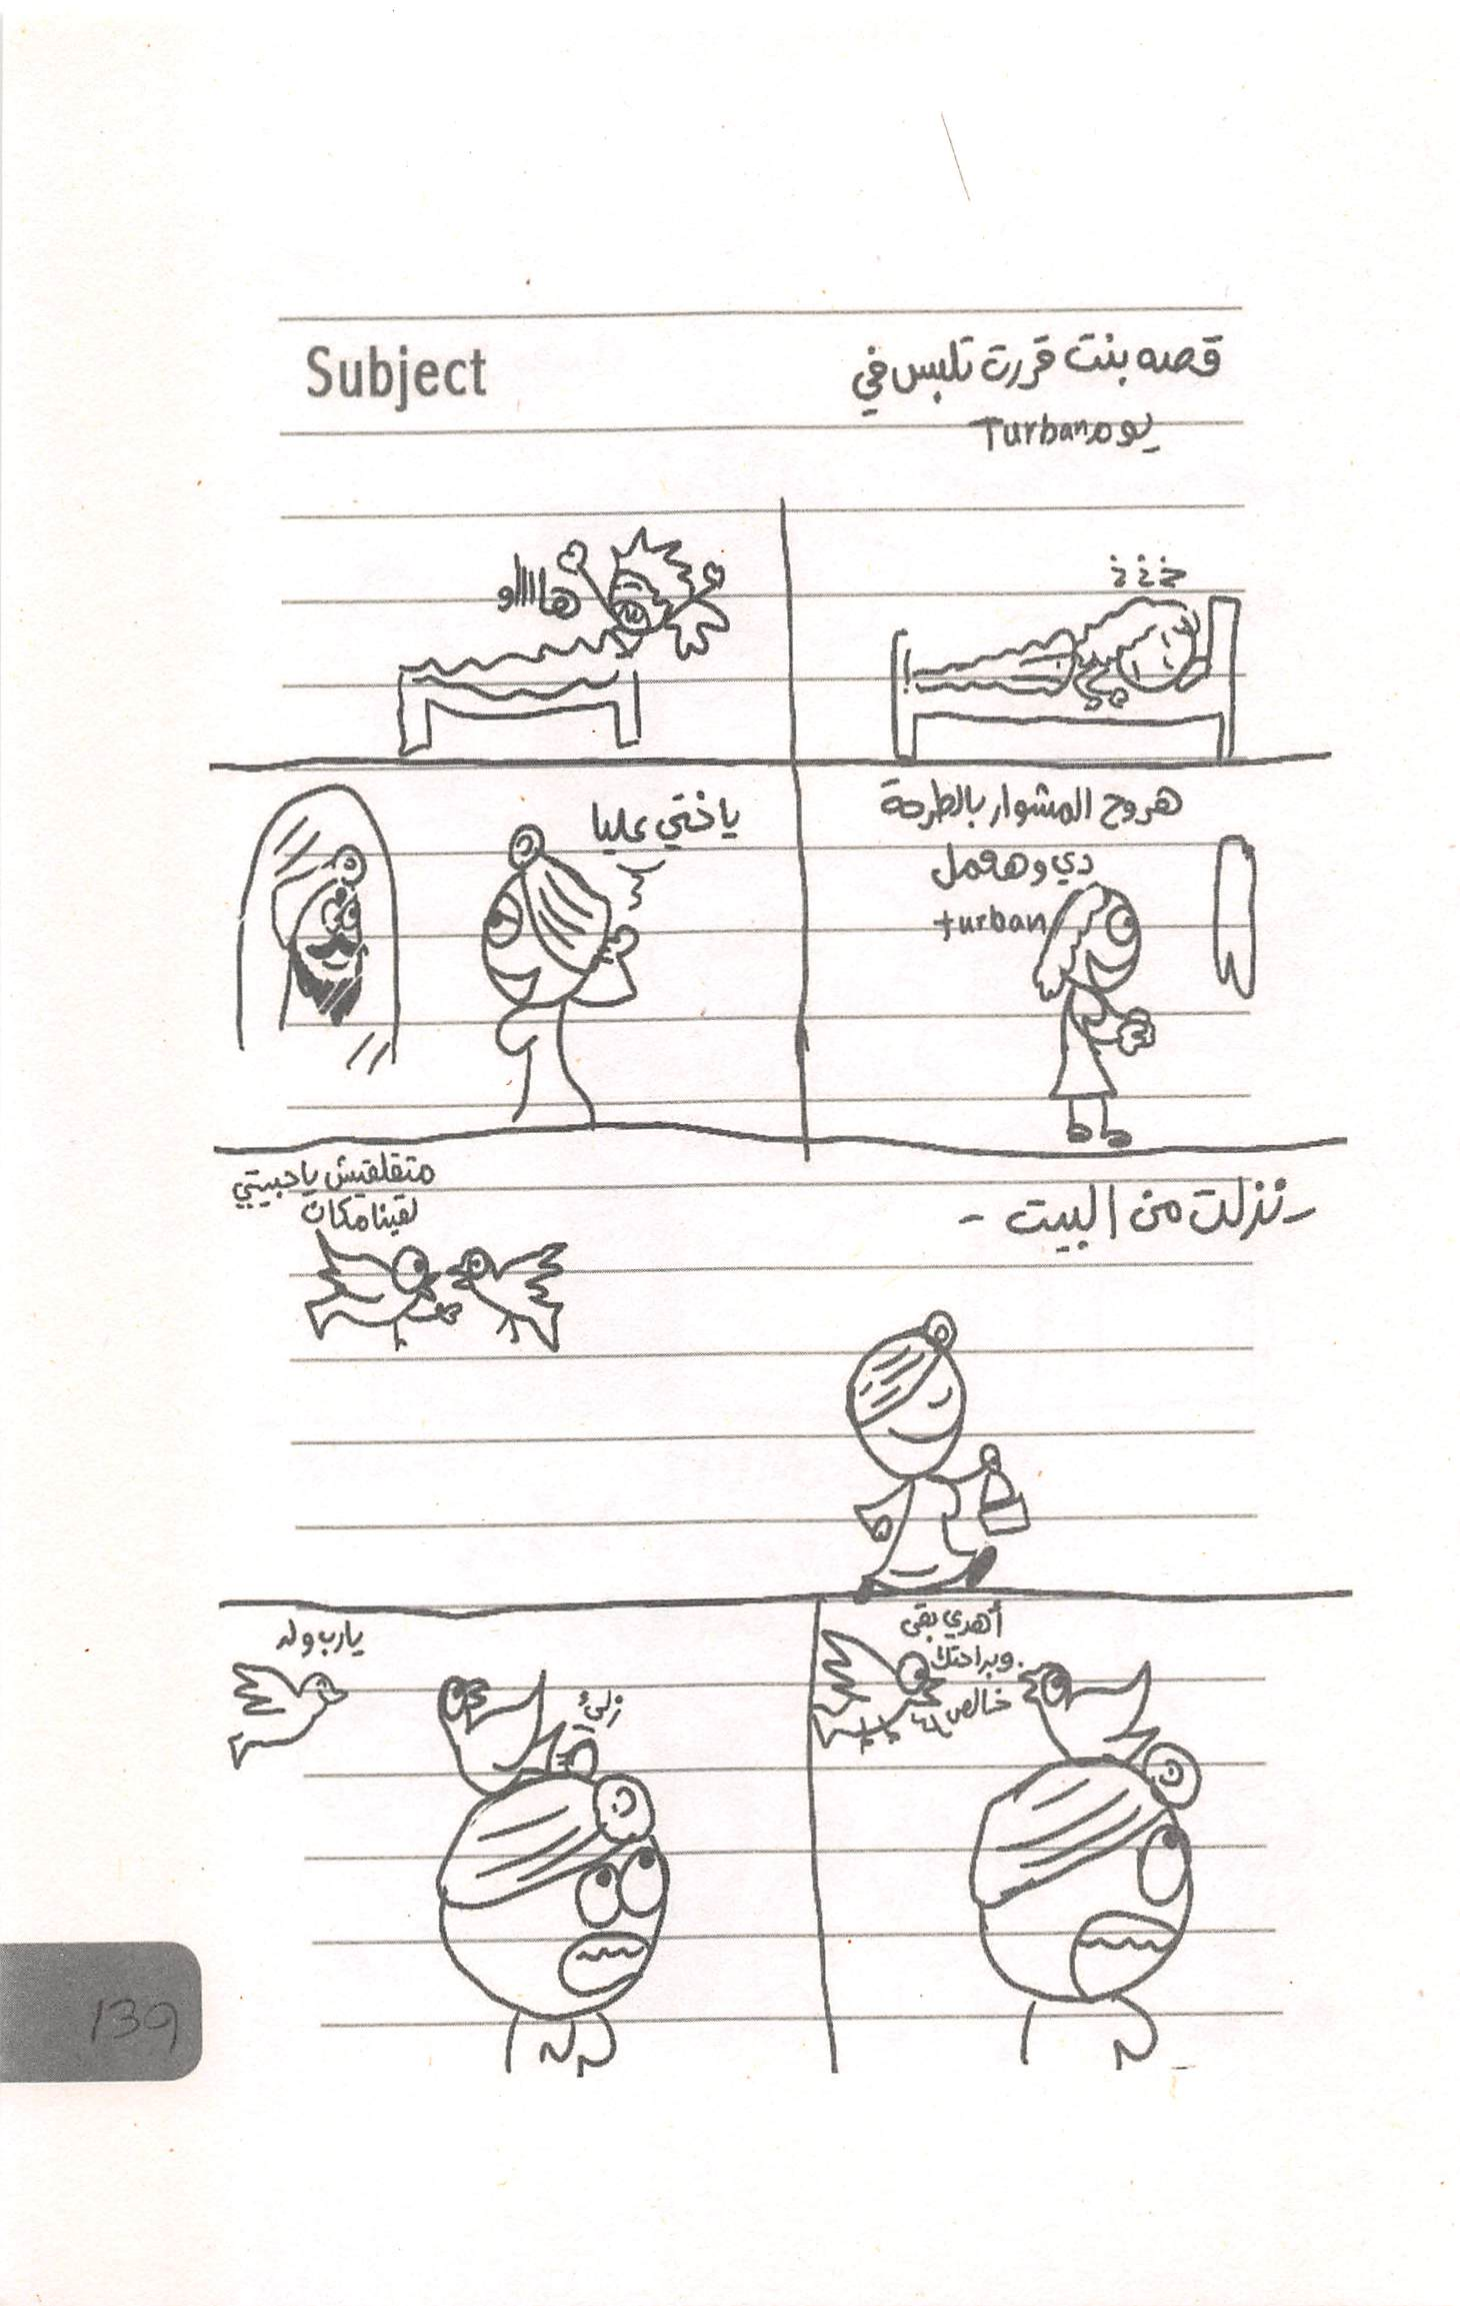 Subject
قصه بنت قررت تلبس في
يوم Turban
خ خ خ
هااااو
هروح المشوار بالطرحة
دي وهعمل
turban
ياختي عليا
- نزلت من البيت -
متقلقيش ياحبيبتي
لقينا مكان
أهدي بقى
وبراحتك
خالص
يارب ولد
139